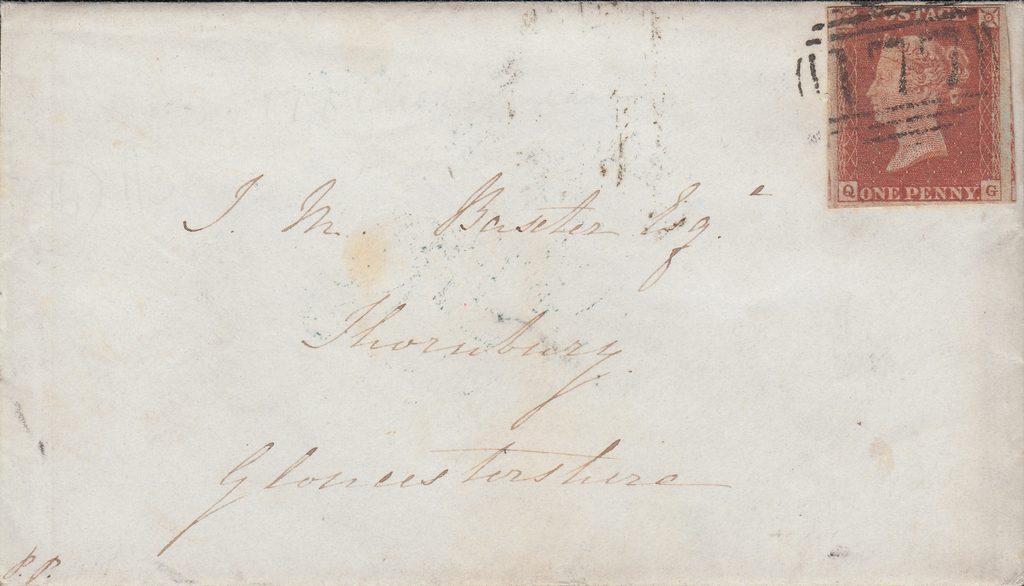 POSTAGE
177
Q ONE PENNY. G
J. M. Baxter Esqr.
Thornbury
Gloucestershire
P.P.